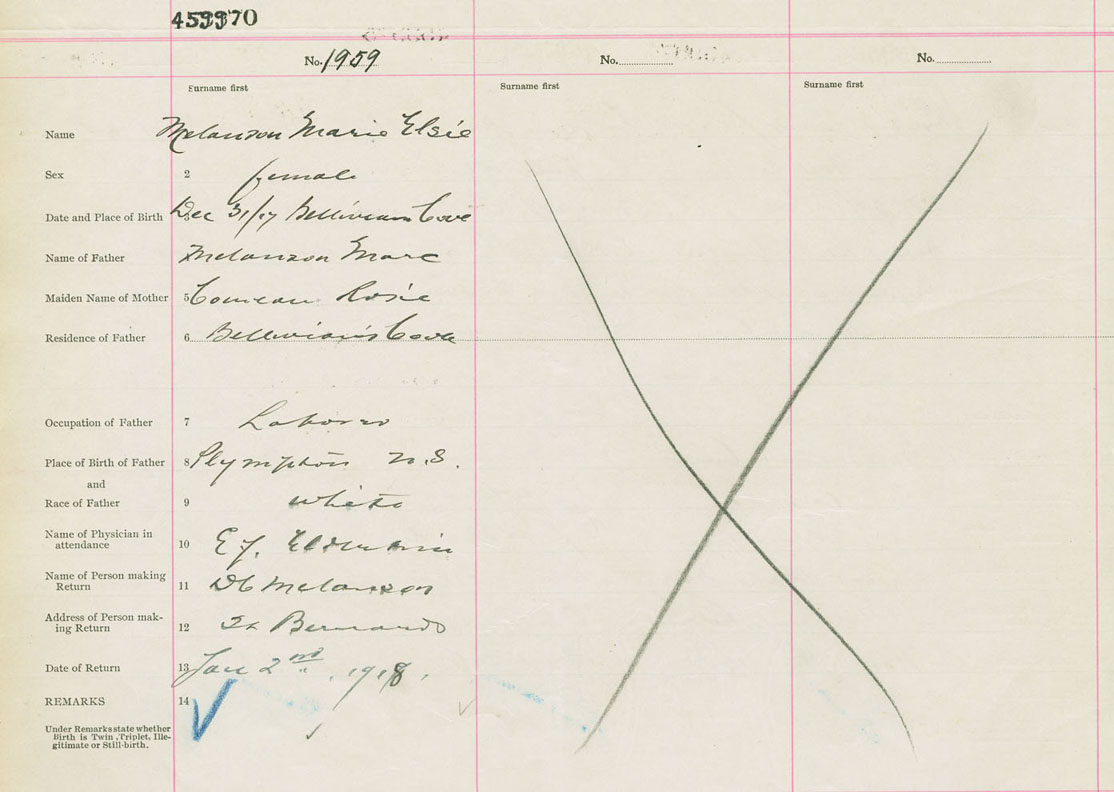 459970
No. 1959 No. No.
Surname first Surname first Surname first
Name Melanson Marie Elsie
Sex 2 female
Date and Place of Birth 3 Dec 31/17 Belliveaus Cove
Name of Father Melanson Marc
Maiden Name of Mother 5 Comeau Rosie
Residence of Father 6 Belliveau's Cove
Occupation of Father 7 Laborer
Place of Birth of Father 8 Plympton N.S.
and
Race of Father 9 White
Name of Physician in
attendance 10 E.J.
Name of Person making
Return 11 Melanson
Address of Person mak-
ing Return 12 St Bernards
Date of Return 13 Jan 2nd, 1918.
REMARKS 14
Under Remarks state whether
Birth is Twin, Triplet, Ille-
gitimate or Still-birth.